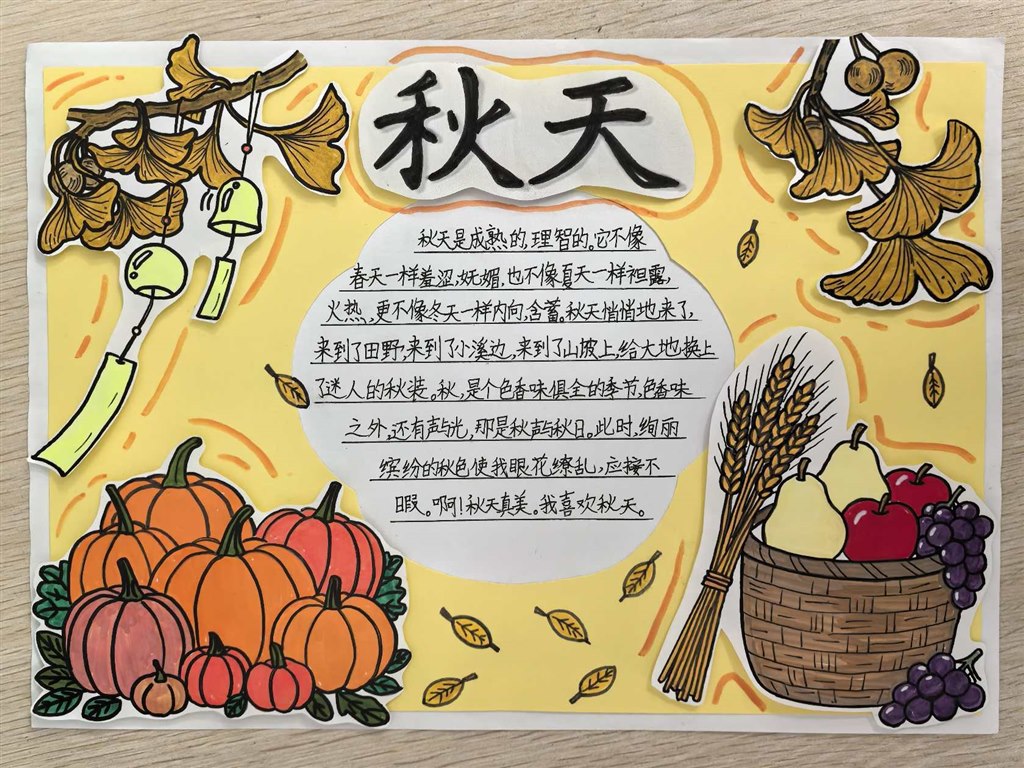 秋天
秋天是成熟的,理智的。它不像
春天一样羞涩,妩媚,也不像夏天一样袒露,
火热,更不像冬天一样内向,含蓄。秋天悄悄地来了,
来到了田野,来到了小溪边,来到了山坡上,给大地换上
了迷人的秋装。秋,是个色香味俱全的季节,色香味
之外,还有声与光,那是秋声与秋日。此时,绚丽
缤纷的秋色使我眼花缭乱,应接不
暇。啊!秋天真美。我喜欢秋天。